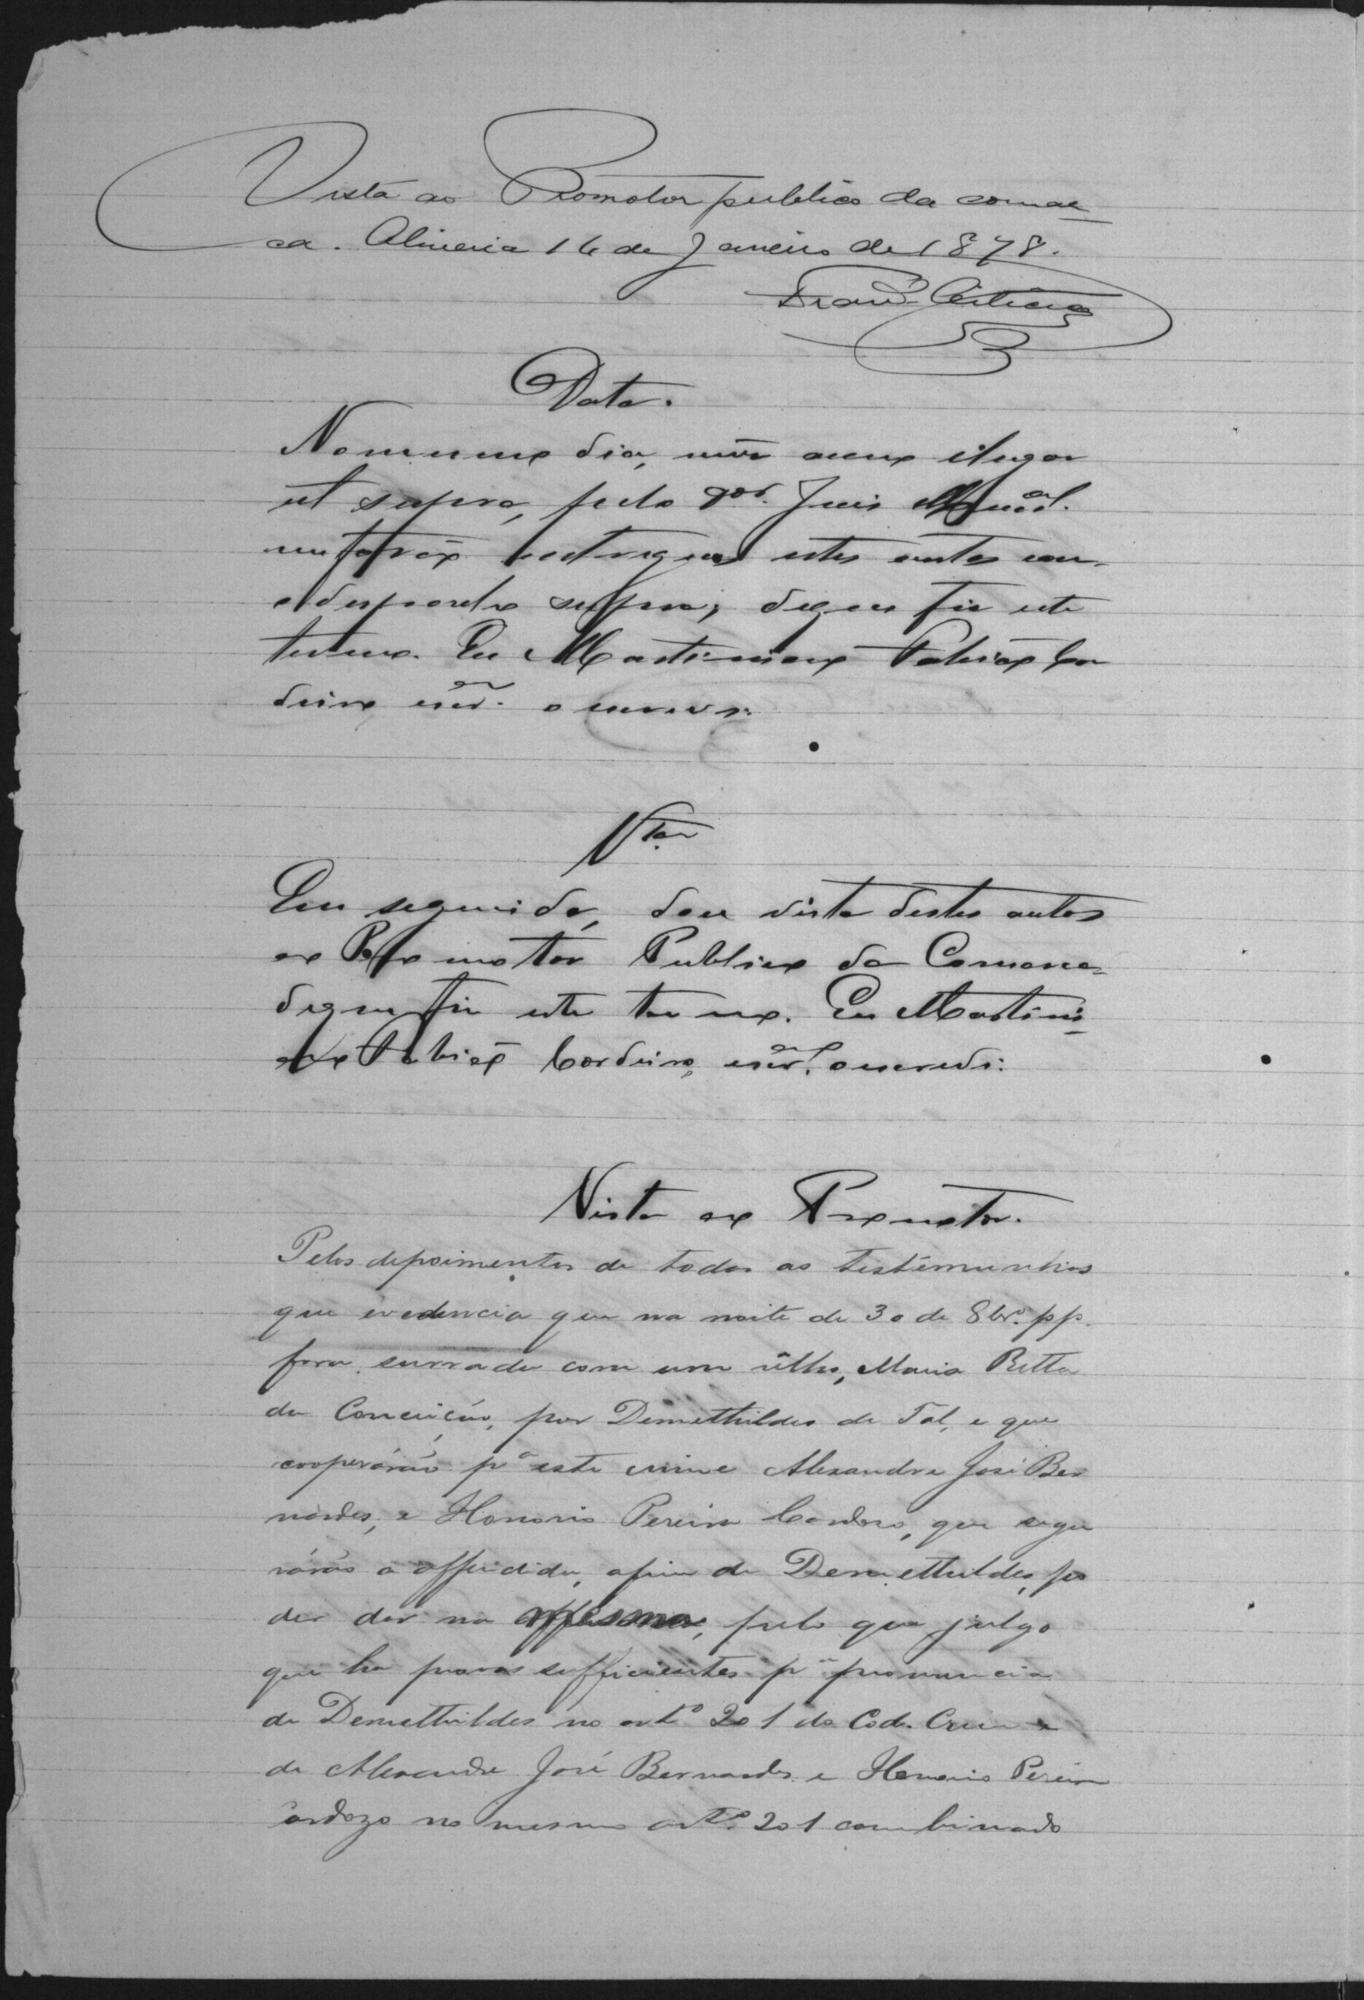 Vista ao Promotor publico da comar-
ca. Oliveira 16 de Janeiro de 1878.
Data.
No mesmo dia, mez anno e lugar
ut supra, pelo Juis Munal.
me forão entregues estes autos com
o despacho supra; do que fiz este
termo. Eu Martiniano Fabião Cor
deiro escram. o escrevi.
Vta
Em seguida, dou vista destes autos
ao Promotor Publico da Comarca
do que fiz este termo. Eu Martini-
ano Fabião Cordeiro, escram. o escrevi:
Vista ao Promotor.
Pelos depoimentos de todas as testemunhas
que evedencia que na noite de 30 de 8br.º pp.
fora surrada com um Maria Ritta
da Conceição, por Demethildes de Tal, e que
cooperárão pª este crime Alexandre José Ber
nardes, e Honorio Pereira Cardozo, que segu
rárão a offendida, afim de Demethildes, po
der dar na mesma, pelo que julgo
que ha provas sufficientes pª pronuncia
de Demethildes no artº 201 do Cod. Crim e
de Alexandre José Bernardes e Honorio Pereira
Cardozo no mesmo artº. 201 combinado